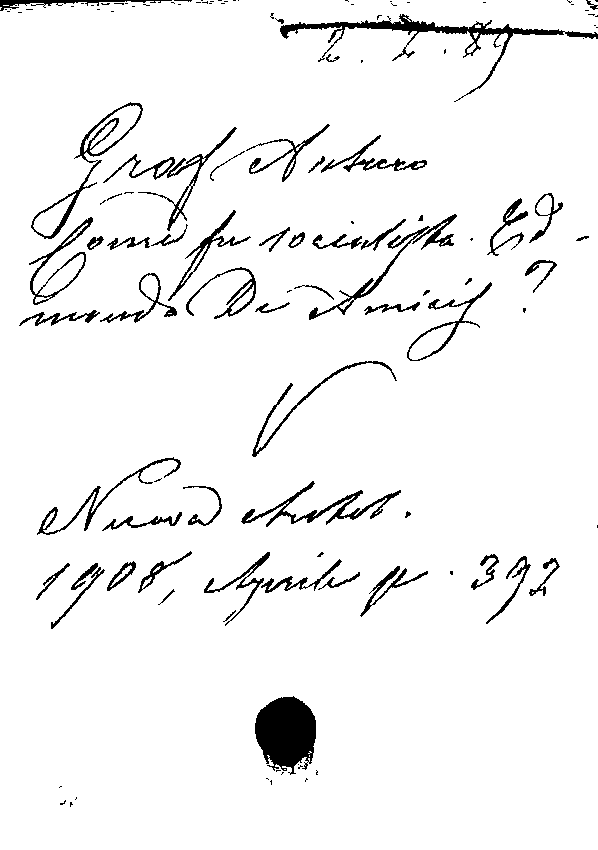 2. 2. 89
Graf Arturo
Come fu socialista Ed-
mondo De Amicis?
V
Nuova Antol.
1908, Aprile p. 392